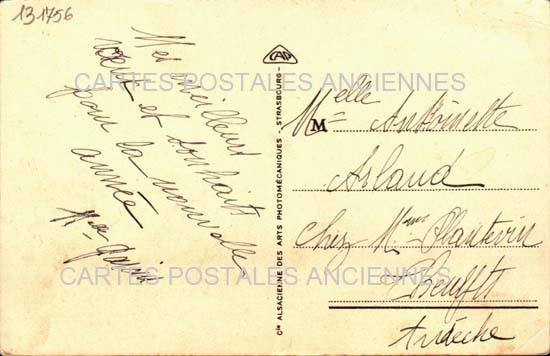 131756
Meilleurs
vœux et souhaits
pour la nouvelle
année
Melle
CAP
Cie ALSACIENNE DES ARTS PHOTOMÉCANIQUES - STRASBOURG
Melle Antoinette
Arland
chez Mme Plantevin
Ardèche
CARTES POSTALES ANCIENNES
CARTES POSTALES ANCIENNES
CARTES POSTALES ANCIENNES